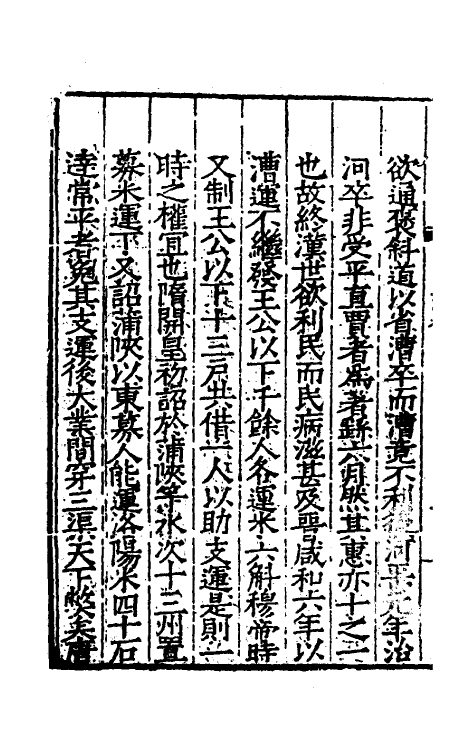 欲通褒斜道以省漕卒而漕竟不利後河平元年治
河卒非受平直賈者為著繇六月然其惠亦十之二
也故終漢世欲利民而民病滋甚及晉咸和六年以
漕運不繼發王公以下千餘人各運米六斛穆帝時
又制王公以下十三戶共借一人以助支運是則一
時之權宜也隋開皇初詔於蒲陝等水次十三州置
募米運丁又詔蒲陝以東募人能運洛陽米四十石
達常平者免其支運後大業間穿三渠天下弊矣唐